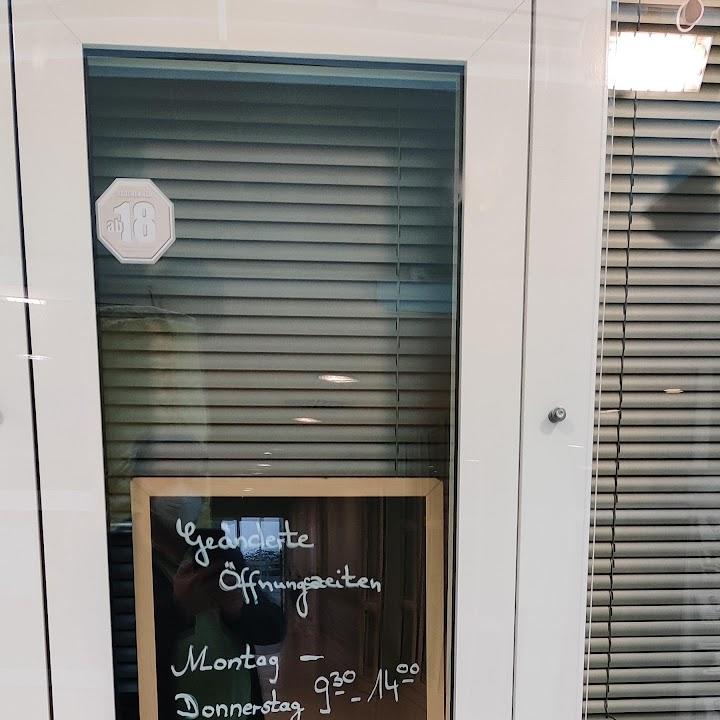 ab 18
Geänderte
Öffnungszeiten
Montag –
Donnerstag 9³⁰ – 14⁰⁰